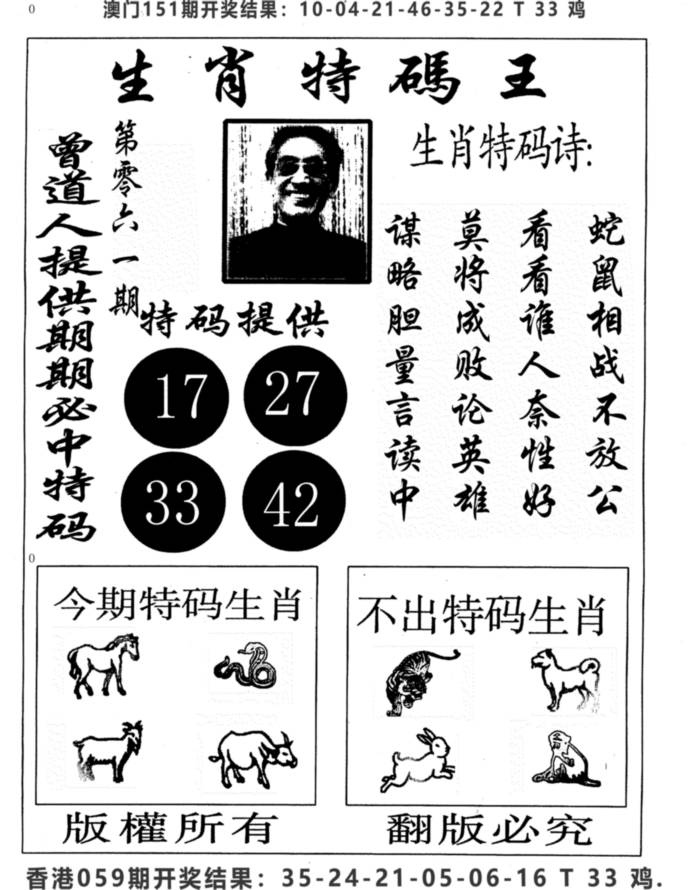 0
澳门151期开奖结果：10-04-21-46-35-22 T 33 鸡
生肖特碼王
曾道人提供期期必中特码
第零六一期
生肖特码诗:
蛇鼠相战不放公
看看谁人奈性好
莫将成败论英雄
谋略胆量言读中
特码提供
17
27
33
42
0
今期特码生肖
不出特码生肖
版權所有
翻版必究
香港059期开奖结果：35-24-21-05-06-16 T 33 鸡.